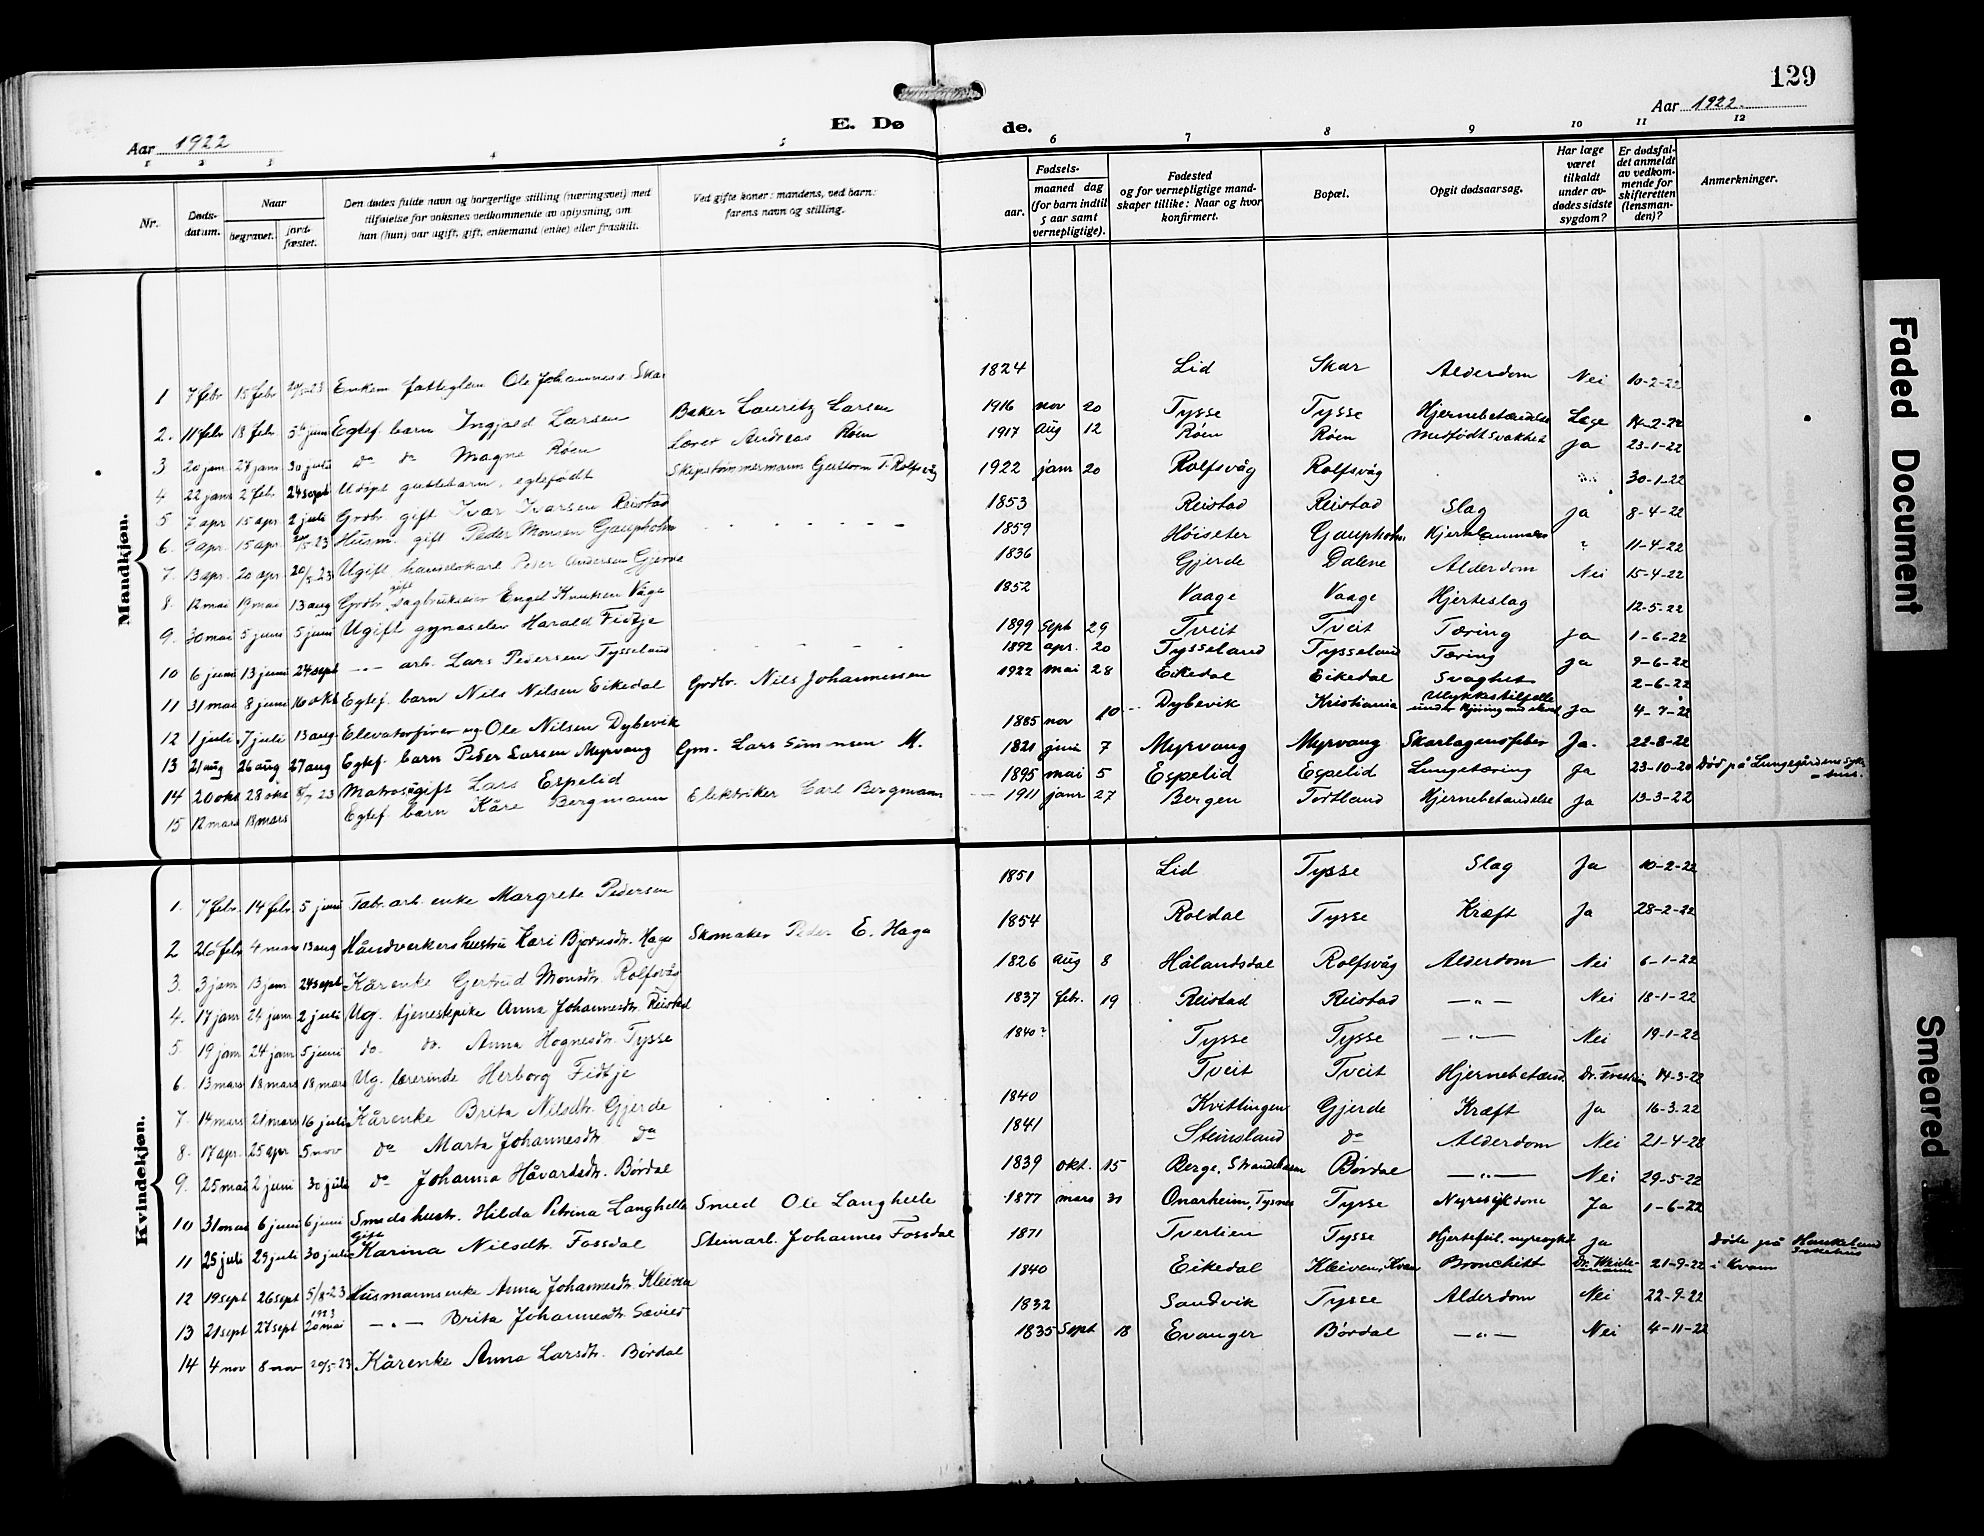 129
Aar 1922
E. Dø de.
Aar 1922.
1 2 3 4 5 6 7 8 9 10 11 12
Nr.
Døds-datum.
Naar
begravet.
jord-fæstet.
Den dødes fulde navn og borgerlige stilling (næringsvei) med
tilføielse for voksnes vedkommende av oplysning, om
han (hun) var ugift, gift, enkemand (enke) eller fraskilt.
Ved gifte koner: mandens, ved barn:
farens navn og stilling.
Fødsels-
aar.
maaned dag
(for barn indtil
5 aar samt
vernepligtige).
Fødested
og for vernepligtige mand-
skaper tillike: Naar og hvor
konfirmert.
Bopæl.
Opgit dødsaarsag.
Har læge
været
tilkaldt
under av-
dødes sidste
sygdom?
Er dødsfal-
det anmeldt
av vedkom-
mende for
skifteretten
(lensman-
den)?
Anmerkninger.
Mandkjøn.
1 7 febr 15 febr 20/5-23 Enkem fattiglem Ole Johanness. Skar 1824 Lid Skar Alderdom Nei 10-2-22
2. 11 febr 18 febr 5te juni Egtef. barn Ingjald Larsen Baker Lauritz Larsen 1916 nov 20 Tysse Tysse Hjernebetændelse Læge 14-2-22
3 20 jan 27 jan 30 juli do do Magne Røen Lærer Andreas Røen 1917 aug 12 Røen Røen Medfødt svakhet Ja 23-1-22
4 22 jan 2 febr 24 sept Udøpt guttebarn, egtefødt Skipstømmermann Guttorm T. Rolfsvåg 1922 janr 20 Rolfsvåg Rolfsvåg 30-1-22
5 7 apr 15 apr 2 juli Grdbr gift Ivar Ivarsen Reistad 1853 Reistad Reistad Slag Ja 8-4-22
6. 9 apr. 15 apr. 20/5-23 Husm. gift Peder Monsen Gaupholm 1859 Høiseter Gaupholm 11-4-22
7. 13 apr. 20 apr. 20/5-23 Ugift handelskarl Peder Andersen Gjerde 1836 Gjerde Dalene Alderdom Nei 15-4-22
8. 12 mai 19 mai 13 aug Grdbr. gift sagbruker Engel Knutsen Våge 1852 Vaage Vaage Hjerteslag 12-5-22
9. 30 mai 5 juni 5 juni Ugift gymnaselev Harald Fidtje 1899 Sept 29 Tveit Tveit Tæring Ja 1-6-22
10 6 juni 13 juni 24 sept -"- arb. Lars Pedersen Tysseland 1892 apr. 20 Tysseland Tysseland Tæring Ja 9-6-22
11 31 mai 8 juni 16 okt Egtef. barn Nils Nilsen Eikedal Grdbr. Nils Johannessen 1922 mai 28 Eikedal Eikedal Svaghet 2-6-22
12 1 juli 7 juli 13 aug Elevatorfører ug Ole Nilsen Dybevik 1885 nov 10 Dybevik Kristiania Ulykkestilfelle under kjøring Ja 4-7-22
13 21 aug 26 aug 27 aug Egtef. barn Peder Larsen Myrvang Gm. Lars Simonsen M. 1821 juni 7 Myrvang Myrvang Skarlagensfeber Ja. 22-8-22
14 20 okt 28 okt 8/7 23 Matros ugift Lars Espelid 1895 mai 5 Espelid Espelid Lungetæring Ja 23-10-20 Død på Lungegårdens sykehus.
15 12 mars 18 mars Egtef. barn Kåre Bergmann Elektriker Carl Bergmann 1911 janr 27 Bergen Tortland Hjernebetændelse Ja 13-3-22
Kvindekjøn.
1. 7 febr. 14 febr. 5 juni Fabr.arb. enke Margrete Pedersen 1851 Lid Tysse Slag Ja 10-2-22
2 26 febr 4 mars 13 aug Håndverkers hustru Kari Bjørnsdtr. Haga Skomaker Peder E. Haga 1854 Roldal Tysse Kræft Ja 28-2-22
3. 3 janr 13 janr 24 sept Kårenke Gertrud Monsdtr. Rolfsvåg 1826 aug 8 Hålandsdal Rolfsvåg Alderdom Nei 6-1-22
4. 17 janr 24 janr 2 juli Ug. tjenestepike Anna Johannesdtr. Reistad 1837 febr. 19 Reistad Reistad -"- Nei 18-1-22
5. 19 janr 24 janr 5 juni do. do. Anna Hognesdtr. Tysse 1840? Tysse Tysse -"- Nei 19-1-22
6. 13 mars 18 mars 18 mars Ug. lærerinde Herborg Fidtje Tveit Tveit Hjernebetænd. 14-3-22
7. 14 mars 21 mars 16 juli Kårenke Brita Nilsdtr. Gjerde 1840 Kvittingen Gjerde Kræft Ja 16-3-22
8. 17 apr. 25 apr 5 nov do Marta Johannesdtr. do 1841 Steinsland do Alderdom Nei 21-4-22
9. 25 mai 2 juni 30 juli do Johanna Håvardsdtr. Børdal 1839 okt. 15 Berge, Strandebarm Børdal -"- Nei 29-5-22
10 31 mai 6 juni 6 juni Smeds hustr. Hilda Petrina Langhelle Smed Ole Langhelle 1877 mars 31 Onarheim, Tysnes Tysse Nyresykdom Ja 1-6-22
11 25 juli 29 juli 30 juli Gift Karina Nilsdtr. Fossdal Steinarb. Johannes Fossdal 1871 Tverlien Tysse Hjertefeil, nyresykd Ja Døde på Haukeland sykehus
12 19 sept 26 sept 5/8-23 Husmannsenke Anna Johannesdtr. Kleiven 1840 Eikedal Kleiven, Kvam Bronchitt 21-9-22 i Kvam
13 21 sept 27 sept 1923 20 mai -"- Brita Johannesdtr. Sævild 1832 Sandvik Tysse Alderdom Nei 22-9-22
14 4 nov 8 nov 20/5-23 Kårenke Anna Larsdtr. Børdal 1835 Sept 18 Evanger Børdal -"- Nei 4-11-22
Faded Document
Smeared